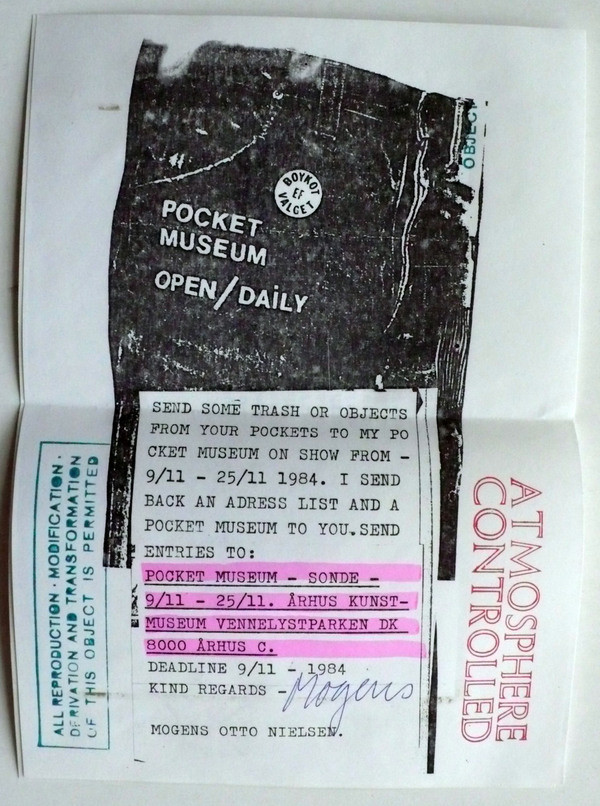 OBJECT
BOYKOT
EF
VALGET
POCKET
MUSEUM
OPEN/DAiLY
SEND SOME TRASH OR OBJECTS
FROM YOUR POCKETS TO MY PO
CKET MUSEUM ON SHOW FROM -
9/11 - 25/11 1984. I SEND
BACK AN ADRESS LIST AND A
POCKET MUSEUM TO YOU.SEND
ENTRIES TO:
POCKET MUSEUM - SONDE -
9/11 - 25/11. ÅRHUS KUNST-
MUSEUM VENNELYSTPARKEN DK
8000 ÅRHUS C.
DEADLINE 9/11 - 1984
KIND REGARDS - Mogens
MOGENS OTTO NIELSEN.
ALL REPRODUCTION · MODIFICATION ·
DERIVATION AND TRANSFORMATION
OF THIS OBJECT IS PERMITTED
ATMOSPHERE
CONTROLLED